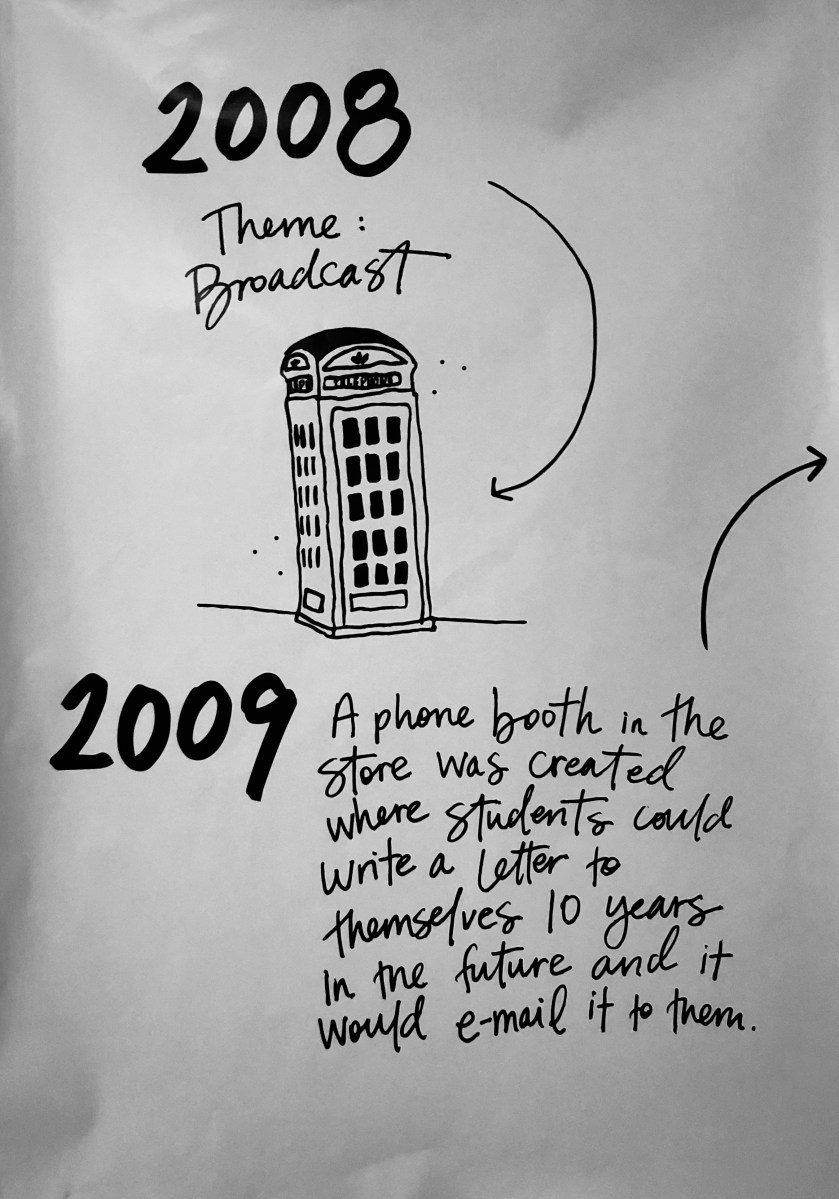 2008
Theme:
Broadcast
TELEPHONE
2009
A phone booth in the
store was created
where students could
write a letter to
themselves 10 years
in the future and it
would e-mail it to them.